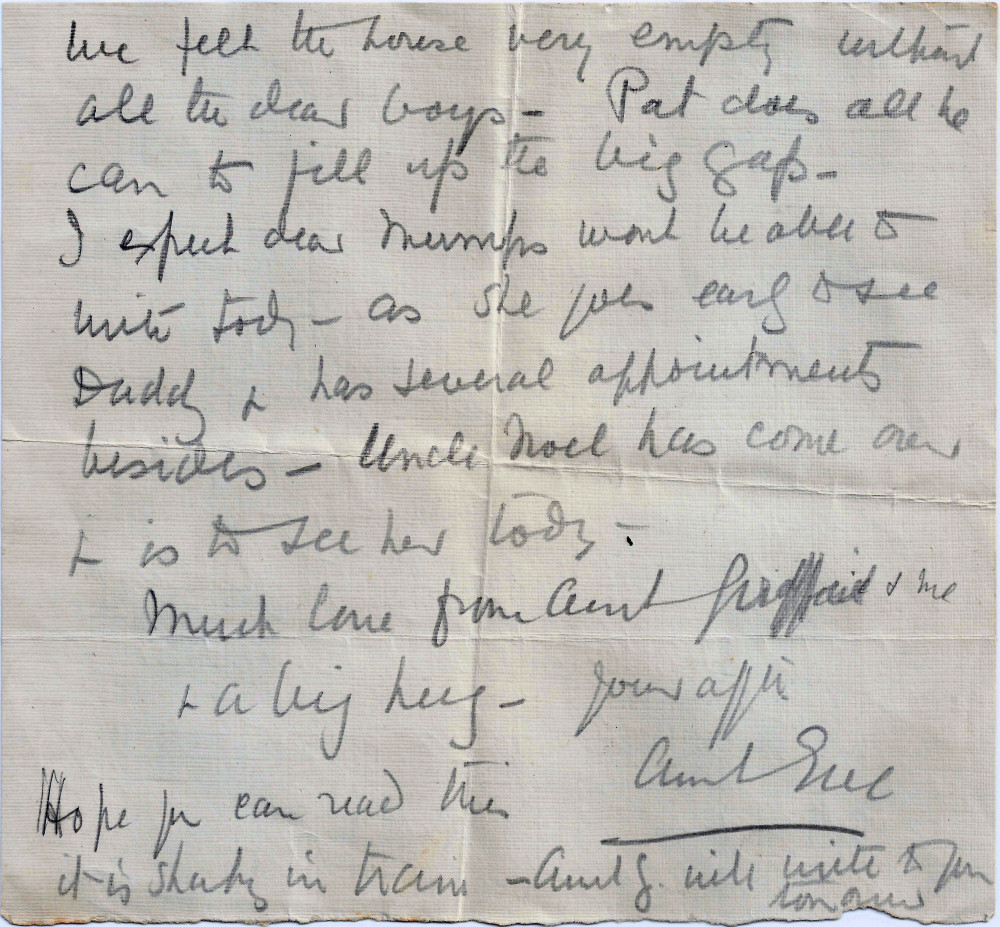 We felt the house very empty without
all the dear boys – Pat does all he
can to fill up the big gap –
I expect dear Mumps wont be able to
write today – as she goes early to see
Daddy & has several appointments
besides – Uncle Noel has come over
& is to see her today –
Much love from Aunt & me
& a big hug – Your affte
Aunt
Hope you can read this
it is shaky in train – Aunt G. will write to you
tomorrow